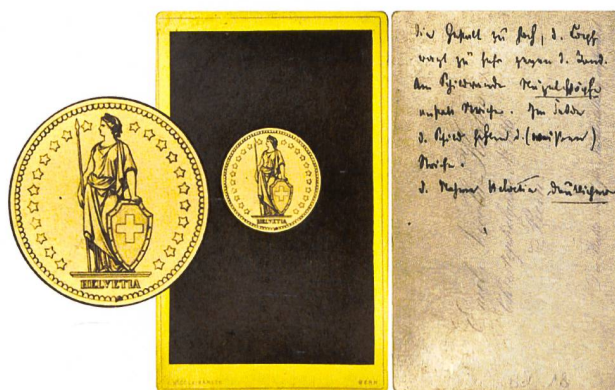 HELVETIA
HELVETIA
BERN
Die Gestalt zu hoch, d. Kopf
ragt zu sehr gegen d. Rand.
Am Schildrande Nägelköpfe
anstatt Striche. Im Felde
d. Schild fehlen d. (weißen)
Striche.
d. Namen Helvetia deutlicher